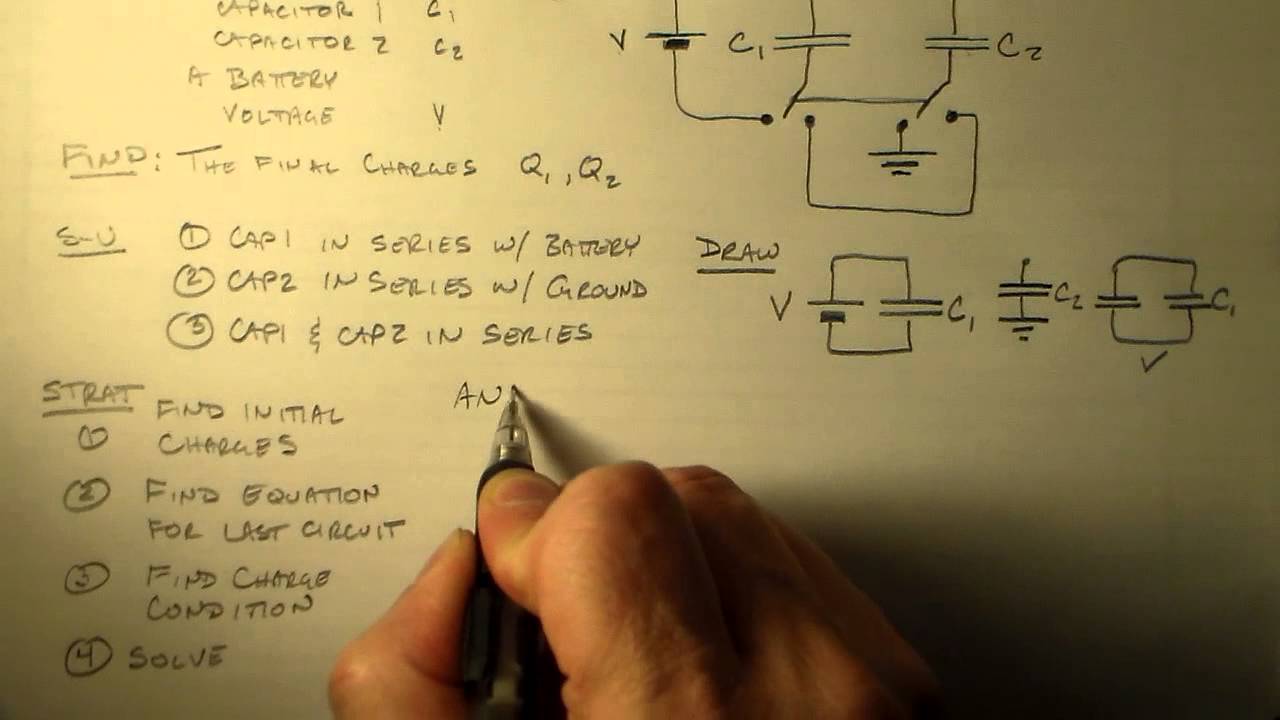 CAPACITOR 1 C1
CAPACITOR 2 C2
A BATTERY
VOLTAGE V
FIND: THE FINAL CHARGES Q1, Q2
V C1 C2
S-U ① CAP1 IN SERIES W/ BATTERY
② CAP2 IN SERIES W/ GROUND
③ CAP1 & CAP2 IN SERIES
DRAW
V C1 C2 C1
V
STRAT
① FIND INITIAL
CHARGES
② FIND EQUATION
FOR LAST CIRCUIT
③ FIND CHARGE
CONDITION
④ SOLVE
AN